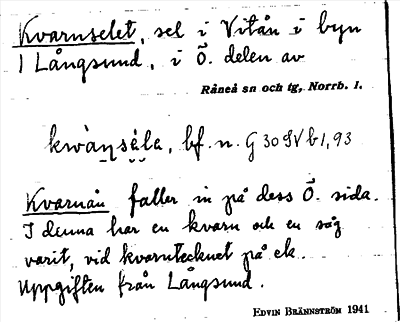 Kvarnselet, sel i Vitån i byn
Långsund, i Ö. delen av
Råneå sn och tg, Norrb. l.
bf. n. G 30 SV b 1, 93
Kvarnån faller in på dess Ö. sida.
I denna har en kvarn och en såg
varit, vid kvarntecknet på ek.
Uppgiften från Långsund.
EDVIN BRÄNNSTRÖM 1941